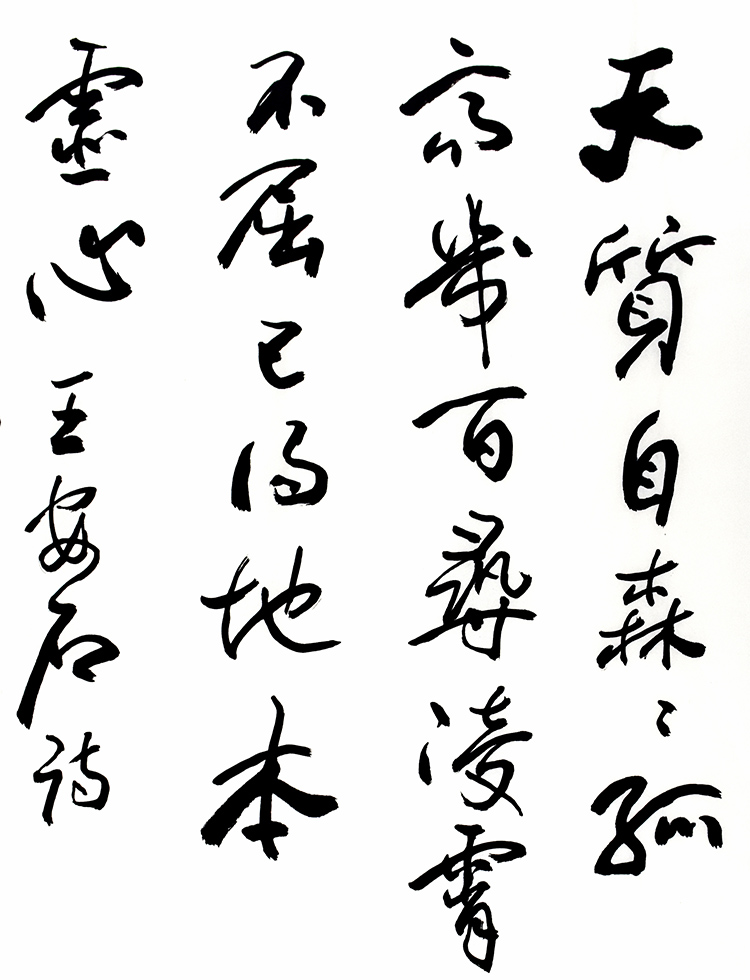 天質自森々孤
高幾百尋凌霄
不屈己得地本
虛心 王安石詩